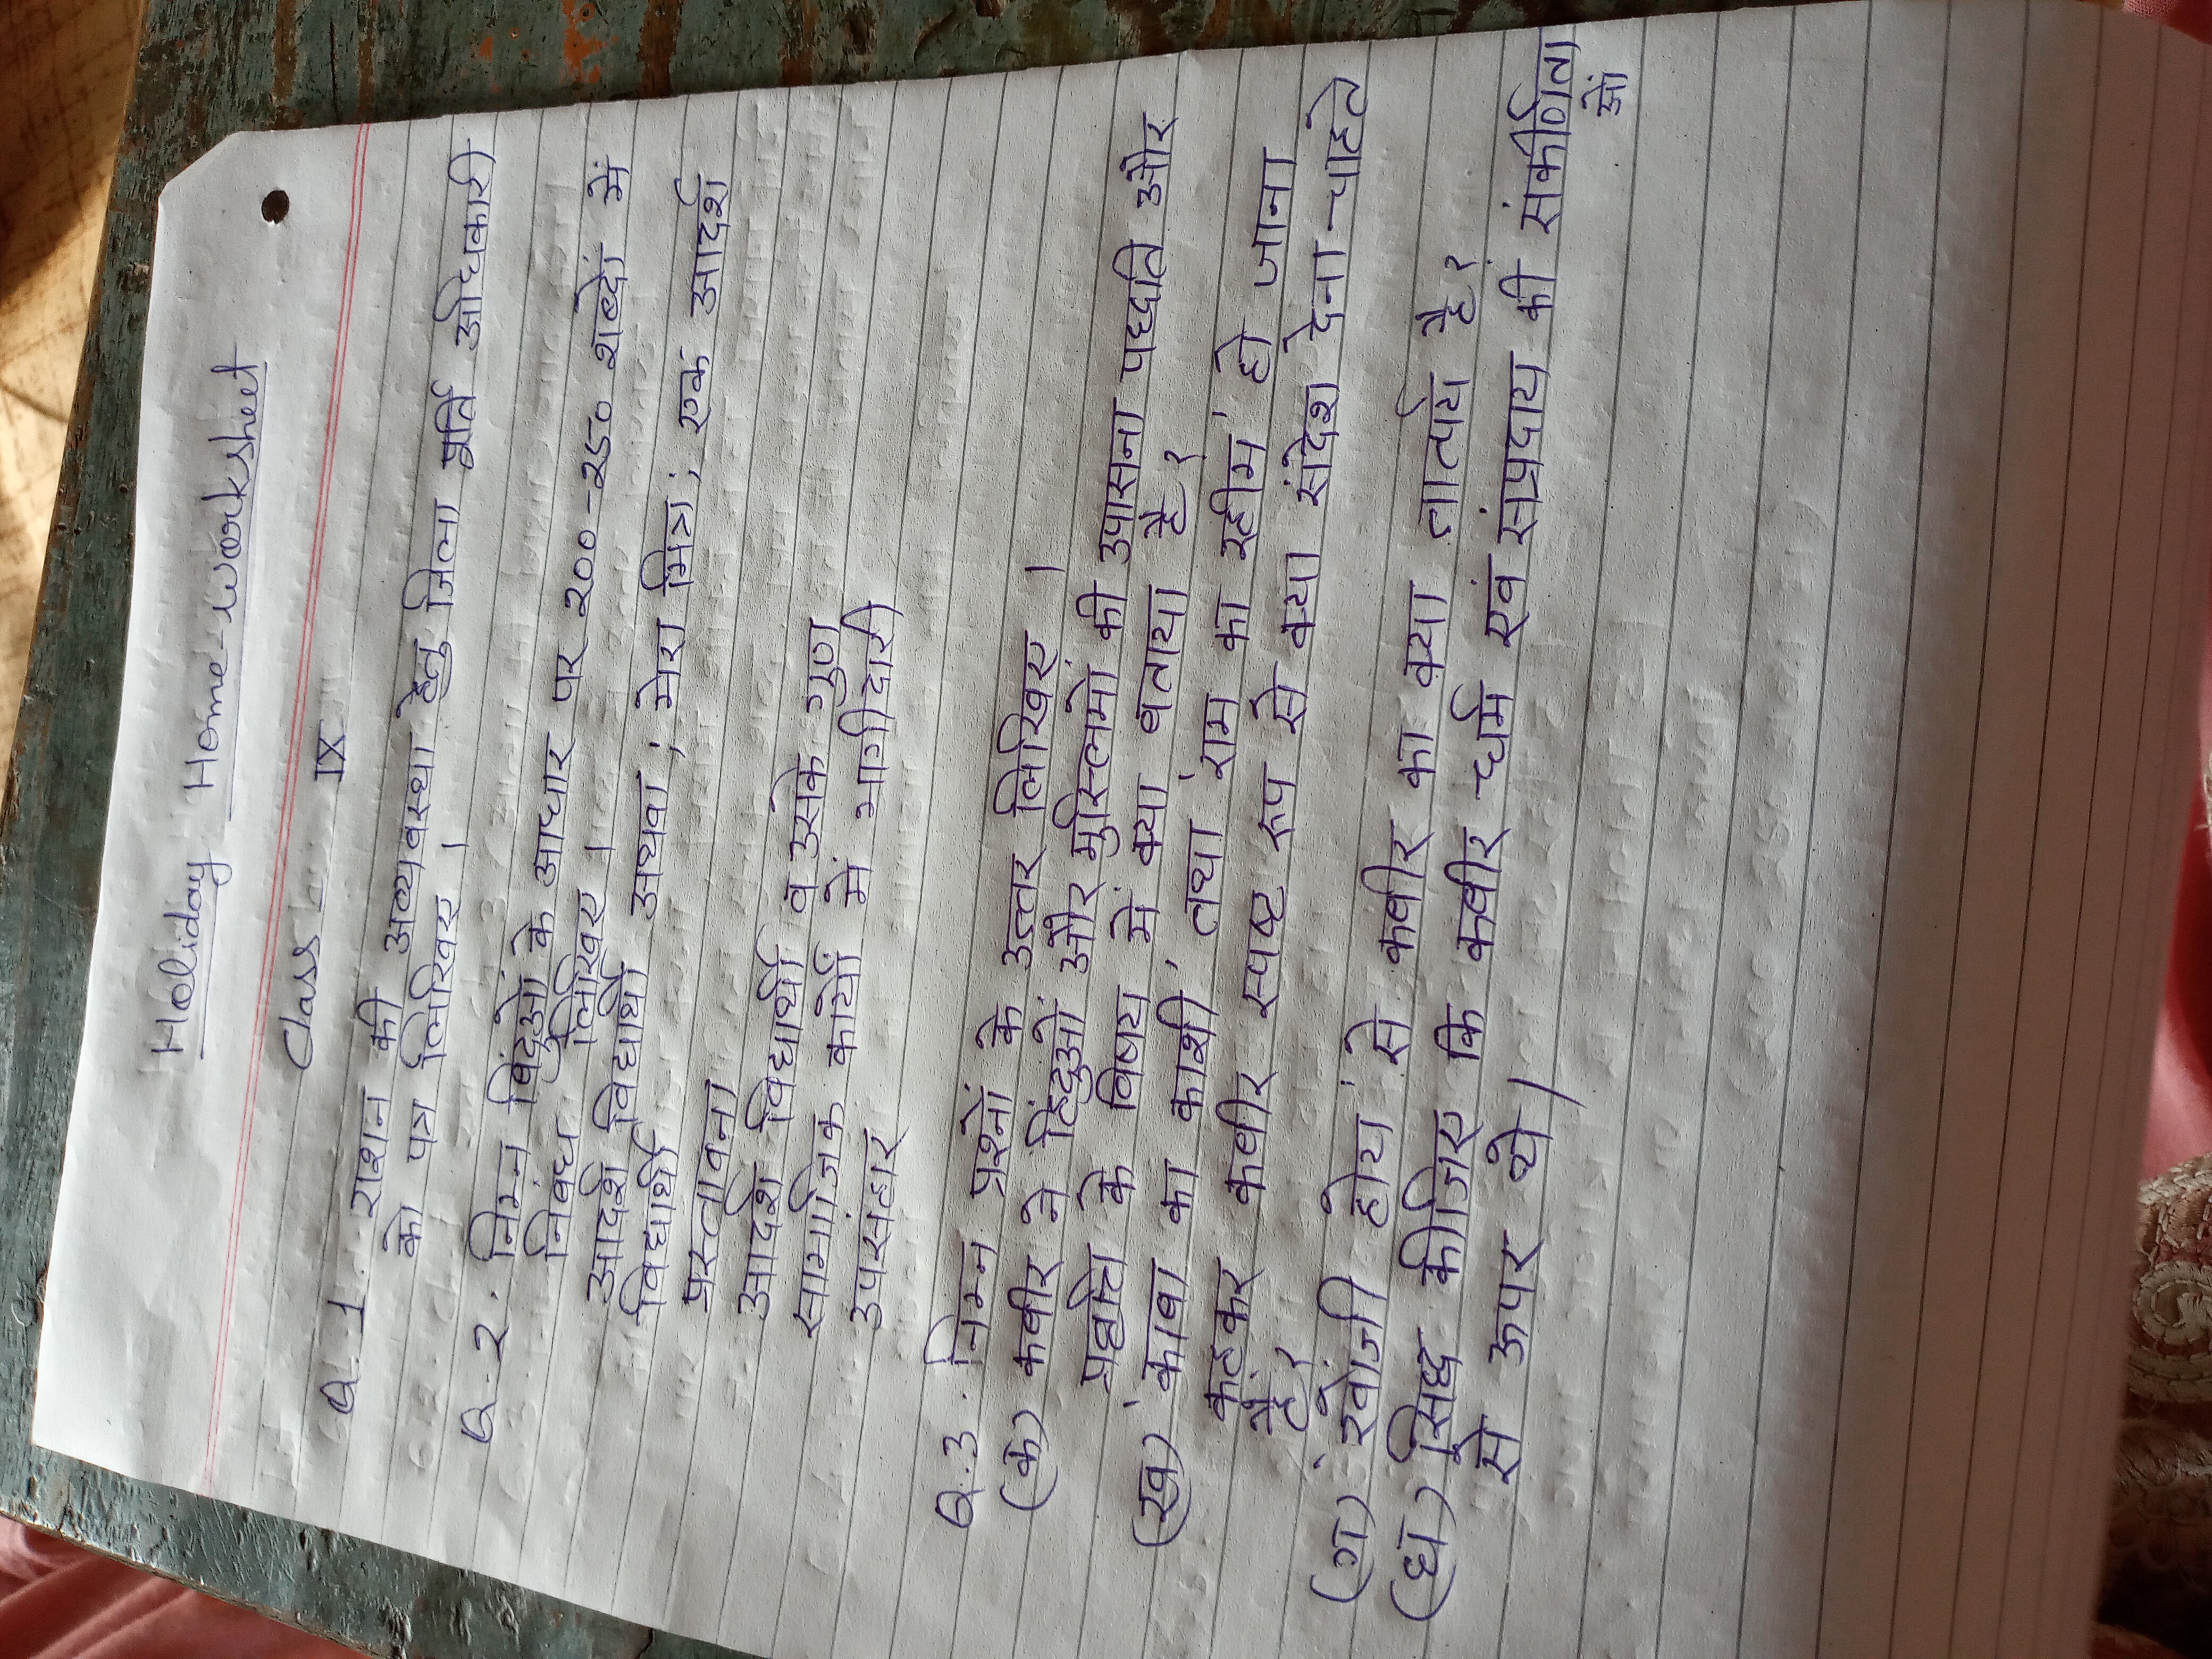 Holiday Home-Worksheet
Class IX
Q.1. राशन की अव्यवस्था हेतु जिला पूर्ति अधिकारी
को पत्र लिखिए ।
Q.2. निम्न बिंदुओं के आधार पर 200-250 शब्दों में
निबंध लिखिए ।
आदर्श विद्यार्थी अथवा ; मेरा मित्र ; एक आदर्श
विद्यार्थी
प्रस्तावना
आदर्श विद्यार्थी व उसके गुण
सामाजिक कार्यों में भागीदारी
उपसंहार
Q.3. निम्न प्रश्नों के उत्तर लिखिए ।
(क) कबीर ने हिंदुओं और मुस्लिमों की उपासना पध्दति और
के विषय में क्या बताया है ?
(ख) 'काबा का काशी' तथा 'राम का रहीम' हो जाना
कहकर कबीर स्पष्ट रूप से क्या संदेश देना चाहते
हैं ?
(ग) 'खोजी होय' से कबीर का क्या तात्पर्य है ?
(घ) सिध्द कीजिए कि कबीर धर्म एवं संप्रदाय की संकीर्णता
ओं
से ऊपर थे ।